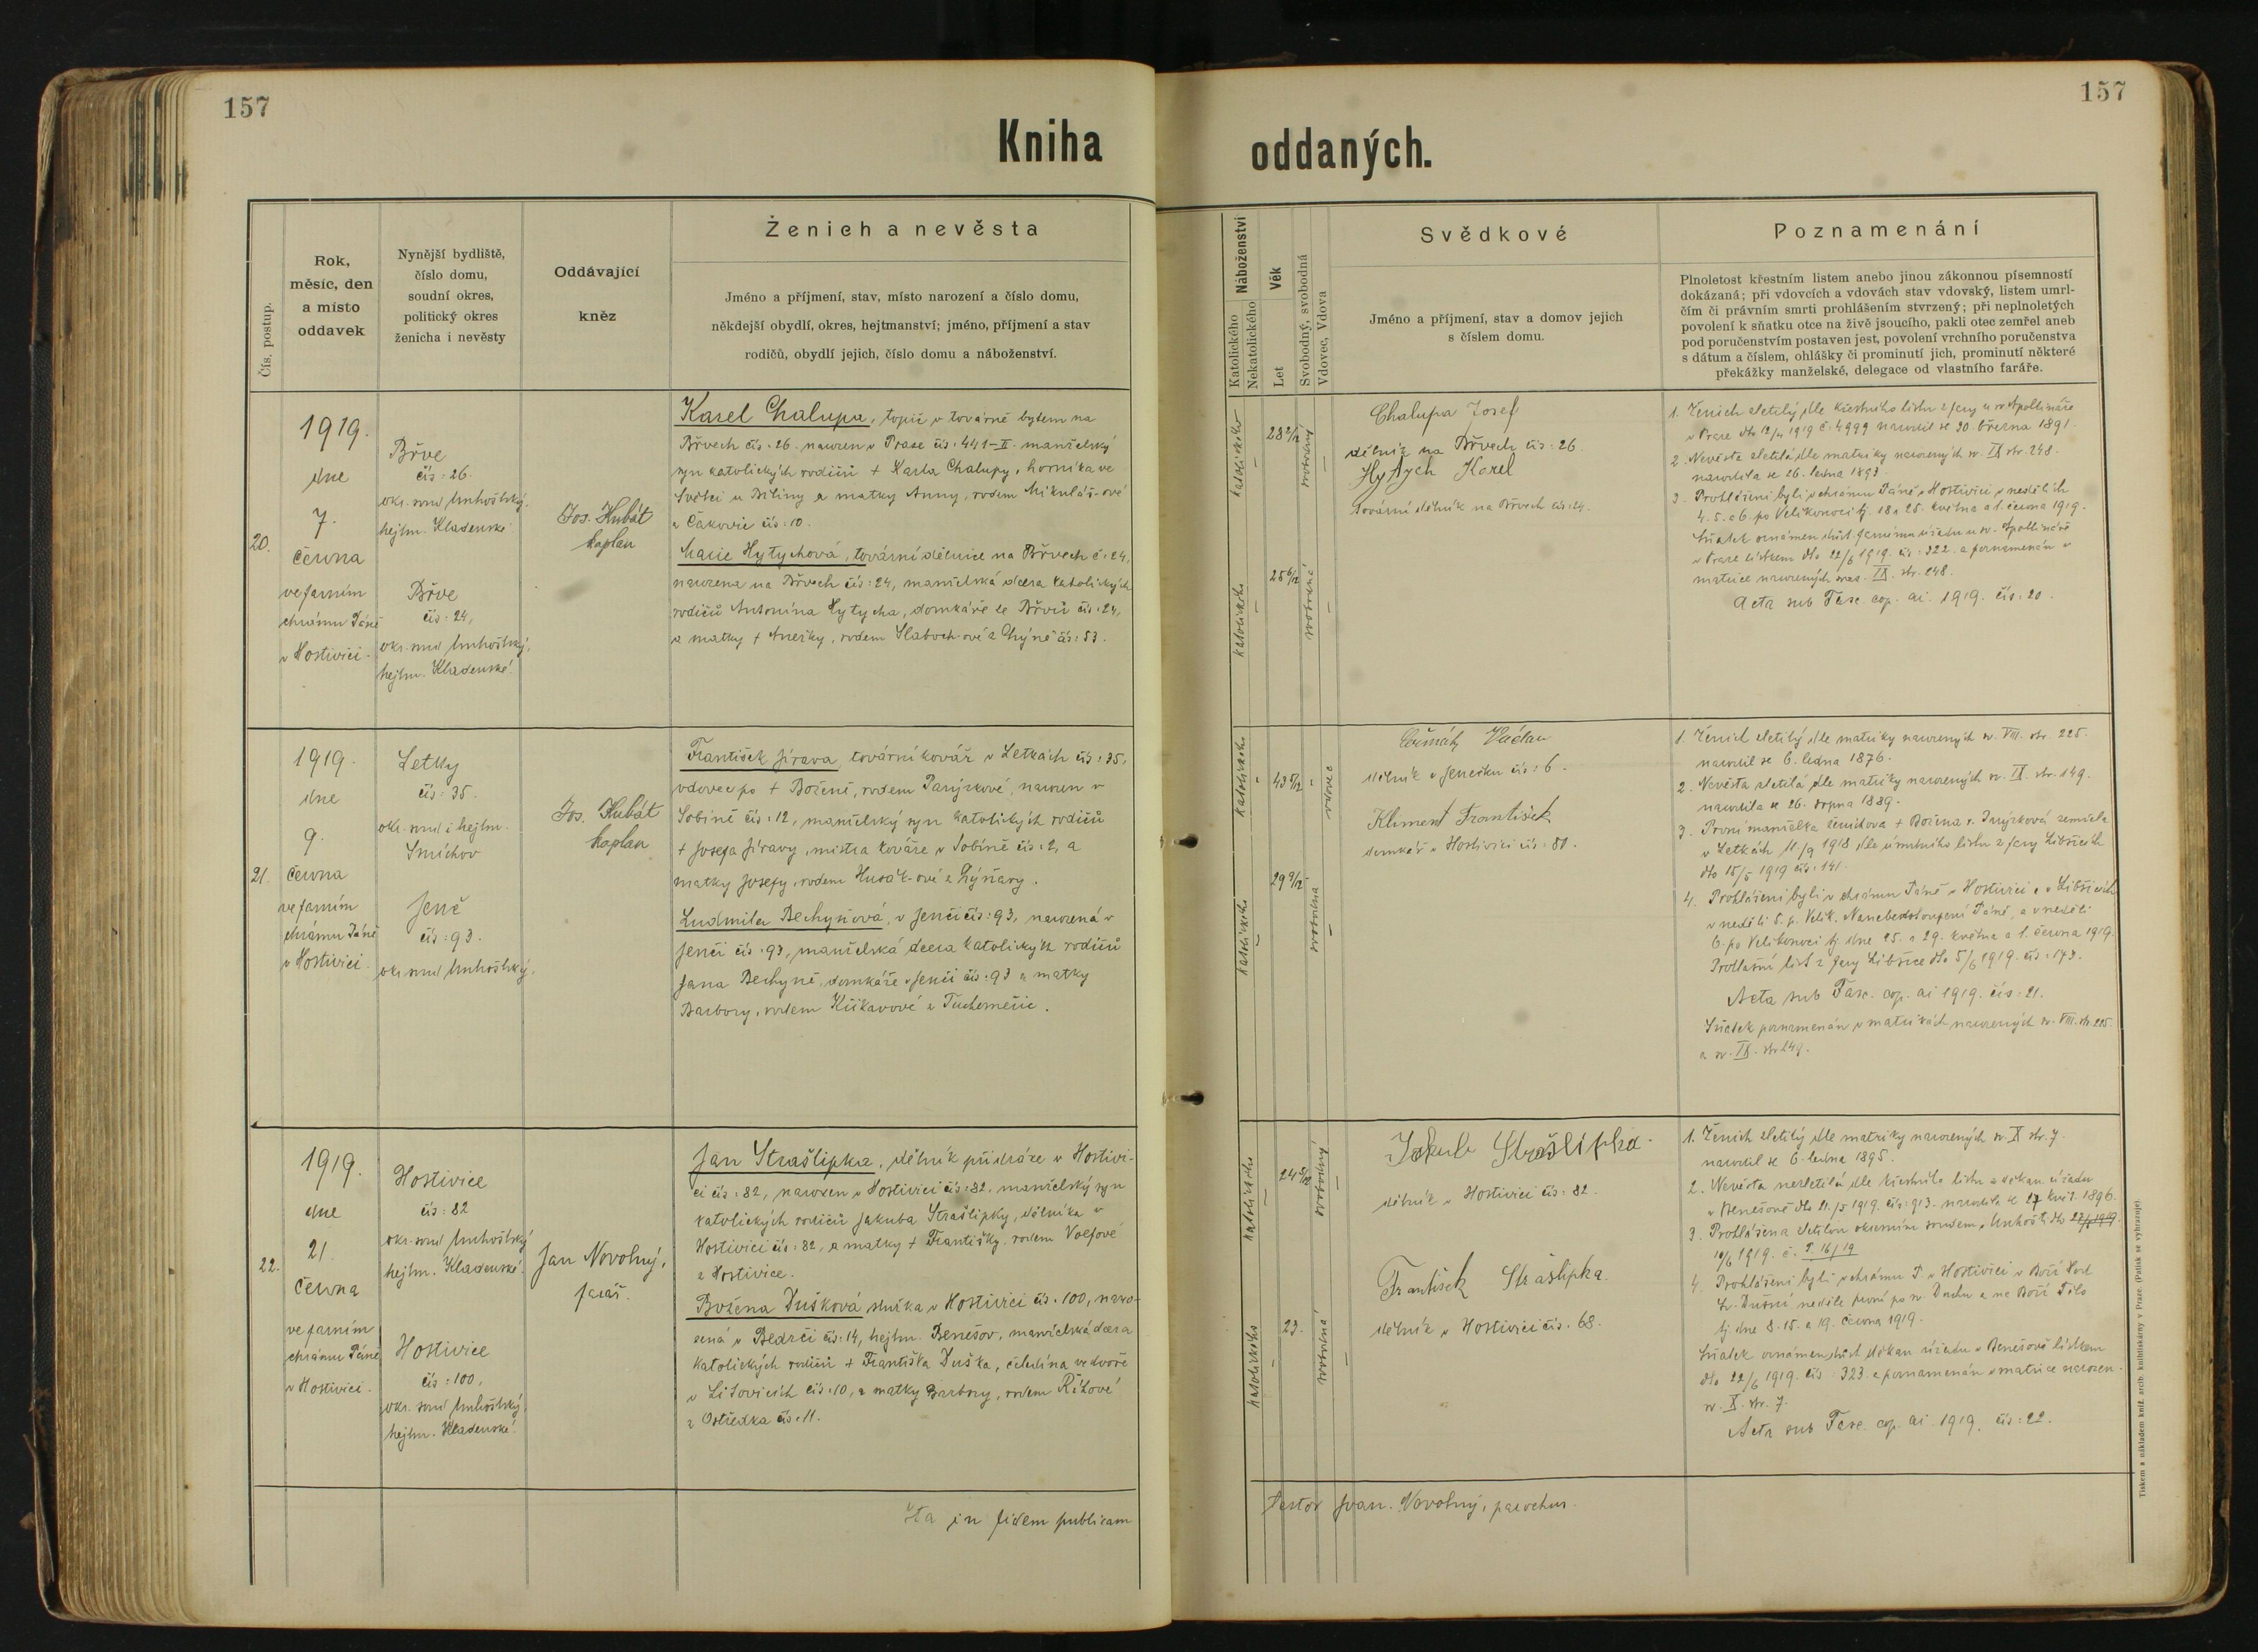 157
157
Kniha
oddaných.
Čís. postup.
Rok,
měsíc, den
a místo
oddavek
Nynější bydliště,
číslo domu,
soudní okres,
politický okres
ženicha i nevěsty
Oddávající
kněz
Ženich a nevěsta
Jméno a příjmení, stav, místo narození a číslo domu,
někdejší obydlí, okres, hejtmanství; jméno, příjmení a stav
rodičů, obydlí jejich, číslo domu a náboženství.
20.
1919.
dne
7.
června
ve farním
chrámu Páně
v Hostivici.
Břve
čís: 26.
okr. soud Unhošťský.
hejtm. Kladenské.
Břve
čís: 24,
okr. soud Unhošťský,
hejtm. Kladenské.
Jos. Hubát
kaplan
Karel Chalupa, topič v továrně bytem na
Břvech čís: 26. narozen v Praze čís: 441-II. manželský
syn katolických rodičů + Karla Chalupy, horníka ve
Světci u Bíliny a matky Anny, rodem Mikuláš-ové
z Čakovic čís: 10.
Marie Hytychová, tovární dělnice na Břvech č: 24,
narozena na Břvech čís: 24, manželská dcera katolických
rodičů Antonína Hytycha, domkáře ze Břvů čís: 24,
a matky + Anežky, rodem Slaboch-ové z Chýně čís: 53.
21.
1919.
dne
9.
června
ve farním
chrámu Páně
v Hostivici.
Letky
čís: 35.
okr. soud i hejtm.
Smíchov
Jeneč
čís: 93.
okr. soud Unhošťský,
Jos. Hubát
kaplan
František Jírava, tovární kovář v Letkách čís: 35,
vdovec po + Boženě, rodem Parýzkové, narozen v
Sobíně čís: 12, manželský syn katolických rodičů
+ Josefa Jíravy, mistra kováře v Sobíně čís: 2, a
matky Josefy, rodem Husák-ové z
Ludmila Bechyňová, v Jenči čís: 93, narozená v
Jenči čís: 93, manželská dcera katolických rodičů
Jana Bechyně, domkáře v Jenči čís: 93 a matky
Barbory, rodem Křikavové z Tuchoměřic.
22.
1919.
dne
21.
června
ve farním
chrámu Páně
v Hostivici.
Hostivice
čís: 82
okr. soud Unhošťský
hejtm. Kladenské.
Hostivice
čís: 100,
okr. soud Unhošťský,
hejtm. Kladenské.
Jan Novotný,
farář.
Jan Strašlipka, dělník při dráze v Hostivi-
ci čís: 82, narozen v Hostivici čís: 82. manželský syn
katolických rodičů Jakuba Strašlipky, dělníka v
Hostivici čís: 82, a matky + Františky, rodem Volfové
z Hostivice.
Božena Dušková služka v Hostivici čís. 100, naro-
zená v Bedrči čís: 14, hejtm. Benešov, manželská dcera
katolických rodičů + Františka Duška, čeledína ve dvoře
v Litovicích čís: 10, a matky Barbory, rodem Říhové
z Ostředka čís: 11.
Ita in fidem publicam
Náboženství
Katolického
Nekatolického
Věk
Let
Svobodný, svobodná
Vdovec, Vdova
Svědkové
Jméno a příjmení, stav a domov jejich
s číslem domu.
Poznamenání
Plnoletost křestním listem anebo jinou zákonnou písemností
dokázaná; při vdovcích a vdovách stav vdovský, listem umrl-
čím či právním smrti prohlášením stvrzený; při neplnoletých
povolení k sňatku otce na živě jsoucího, pakli otec zemřel aneb
pod poručenstvím postaven jest, povolení vrchního poručenstva
s dátum a číslem, ohlášky či prominutí jich, prominutí některé
překážky manželské, delegace od vlastního faráře.
katolického
28 2/12
svobodný
katolického
svobodná
Chalupa Josef
dělník na Břvech čís: 26.
Hytych Karel
tovární dělník na Břvech čís: 24.
1. Ženich zletilý dle křestního listu z fary u sv. Apollináře
v Praze č. 4999 narodil se 20. března 1891.
2. Nevěsta zletilá dle matriky narozených sv. IX str. 248.
narodila se 26. ledna 1893.
3. Prohlášeni byli v chrámu Páně v Hostivici v nedělích
4. 5. a 6. po Velikonoci tj. 18 a 25. května a 1. června 1919.
Sňatek oznámen farnímu úřadu u sv. Apollináře
v Praze lístkem dto 22/6 1919. čís: 322. a poznamenán v
matrice narozených IX. str. 248.
Acta sub Fasc. cop. ai. 1919. čís: 20.
katolického
43 5/12
vdovec
katolického
29 9/12
svobodná
Čermák Václav
dělník v Jenečku čís: 6.
Kliment František
domkář v Hostivici čís: 80.
1. Ženich zletilý dle matriky narozených sv. VIII. str. 225.
narodil se 6. ledna 1876.
2. Nevěsta zletilá dle matriky narozených sv. IX. str. 149.
narodila se 26. srpna 1889.
3. První manželka ženichova + Božena r. Parýzková zemřela
v Letkách 11./9 1918 dle úmrtního listu z fary Libčických
dto 15/5 1919 čís: 141.
4. Prohlášeni byli v chrámu Páně v Hostivici a v Libčicích
v neděli 5. p. Velik. Nanebevstoupení Páně, a v neděli
6. po Velikonoci tj. dne 25. a 29. května a 1. června 1919.
Prohlašní list z fary Libčice dto 5/6 1919. čís: 173.
Acta sub Fasc. cop. ai 1919. čís: 21.
Sňatek poznamenán v matrikách narozených sv. VIII. str. 225.
a sv. IX. str 149.
katolického
24 5/12
svobodný
katolického
23.
svobodná
Jakub Strašlipka
dělník v Hostivici čís: 82.
František Strašlipka.
dělník v Hostivici čís. 68.
1. Ženich zletilý dle matriky narozených sv. X str. 7.
narodil se 6. ledna 1895.
2. Nevěsta nezletilá dle křestního listu z děkan. úřadu
v Benešově dto 21./5 1919. čís: 913. narodila se 27 květ. 1896.
3. Prohlášena zletilou okresním soudem v Unhošti dto
1919. č. P. 16/19
4. Prohlášeni byli v chrámu P. v Hostivici v Boží Hod
Sv. Dušní neděle první po sv. Duchu a na Boží Tělo
tj. dne 8. 15. a 19. června 1919.
Sňatek oznámen děkan. úřadu v Benešově lístkem
dto 22/6 1919. čís: 323. a poznamenán v matrice narozen.
sv. X. str. 7.
Acta sub Fasc. cop. ai. 1919. čís: 22.
testor Joan. Novotný, parochus.
Tiskem a nákladem kníž. arcib. knihtiskárny v Praze. (Patisk se vyhrazuje).